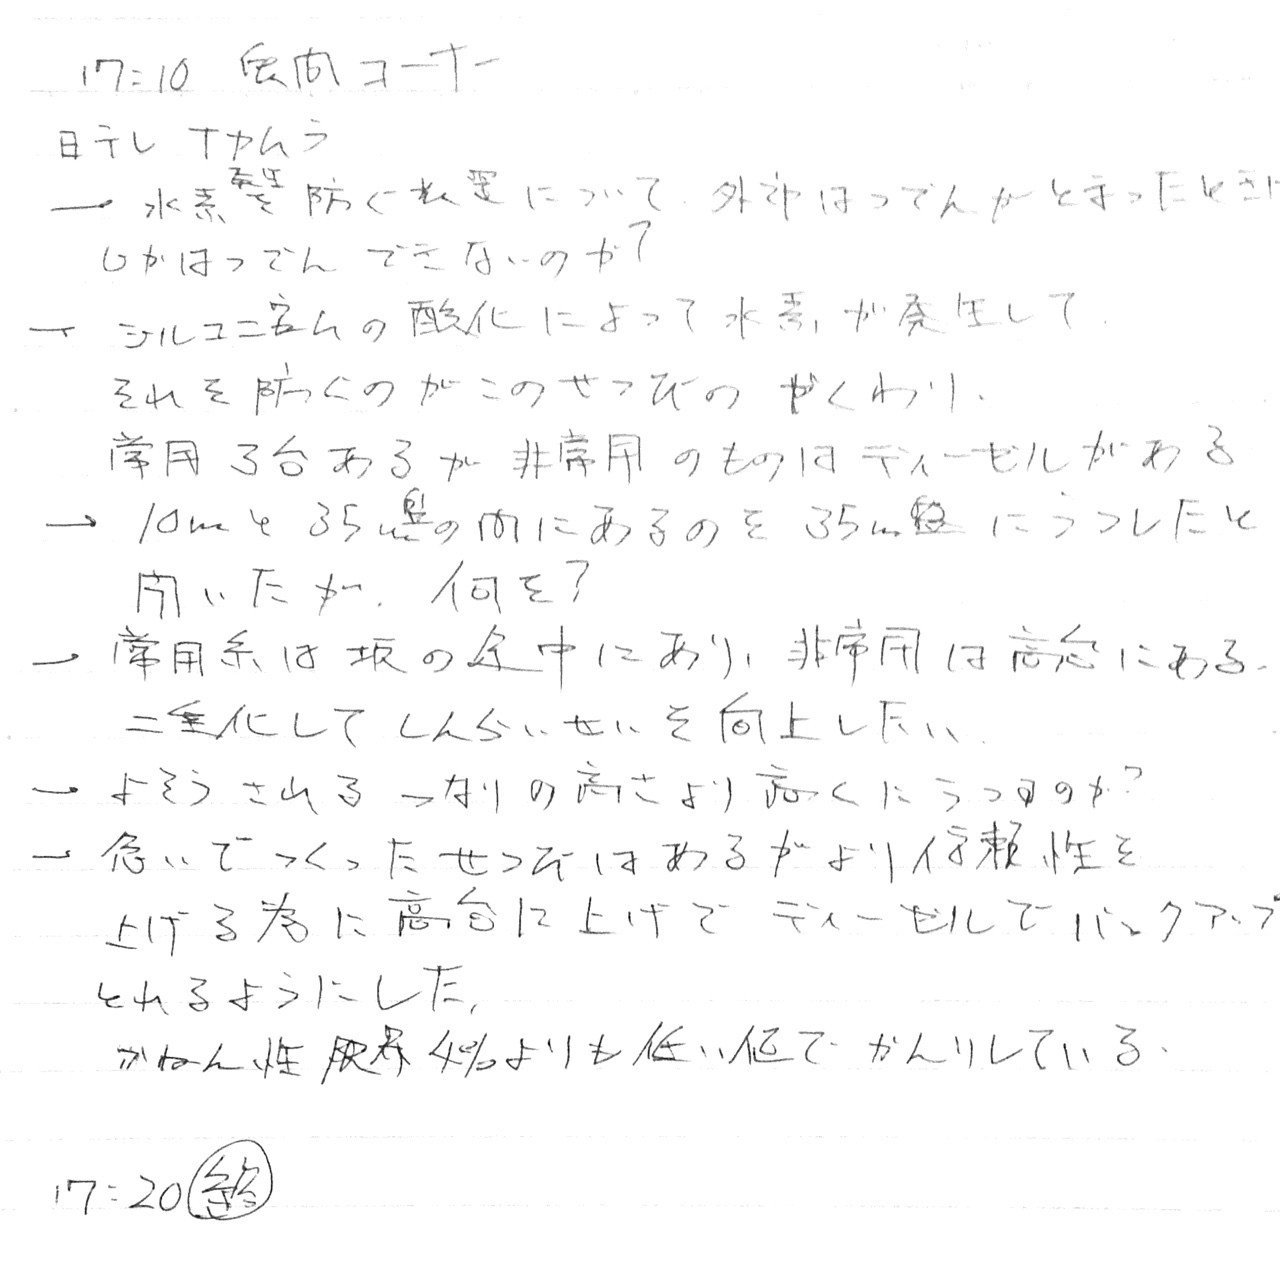 17:10 質問コーナー
日テレ ナカムラ
→ 水素発生を防ぐ装置について、外部はつでんがとまったときに
しかはつでんできないのか?
→ ジルコニウムの酸化によって水素が発生して
それを防ぐのがこのせつびの やくわり.
常用3台あるが非常用のものはディーゼルがある
→ 10mと35m盤の間にあるのを35m盤にうつしたと
聞いたが、何を?
→ 常用系は坂の途中にあり、非常用は高台にある.
二重化してしんらいせいを向上したい.
→ よそうされるつなみの高さより高くにうつすのか?
→ 急いでつくったせつびはあるがより信頼性を
上げる為に高台に上げてディーゼルでバックアップ
とれるようにした,
かねん性限界4%よりも低い値でかんりしている.
17:20 終